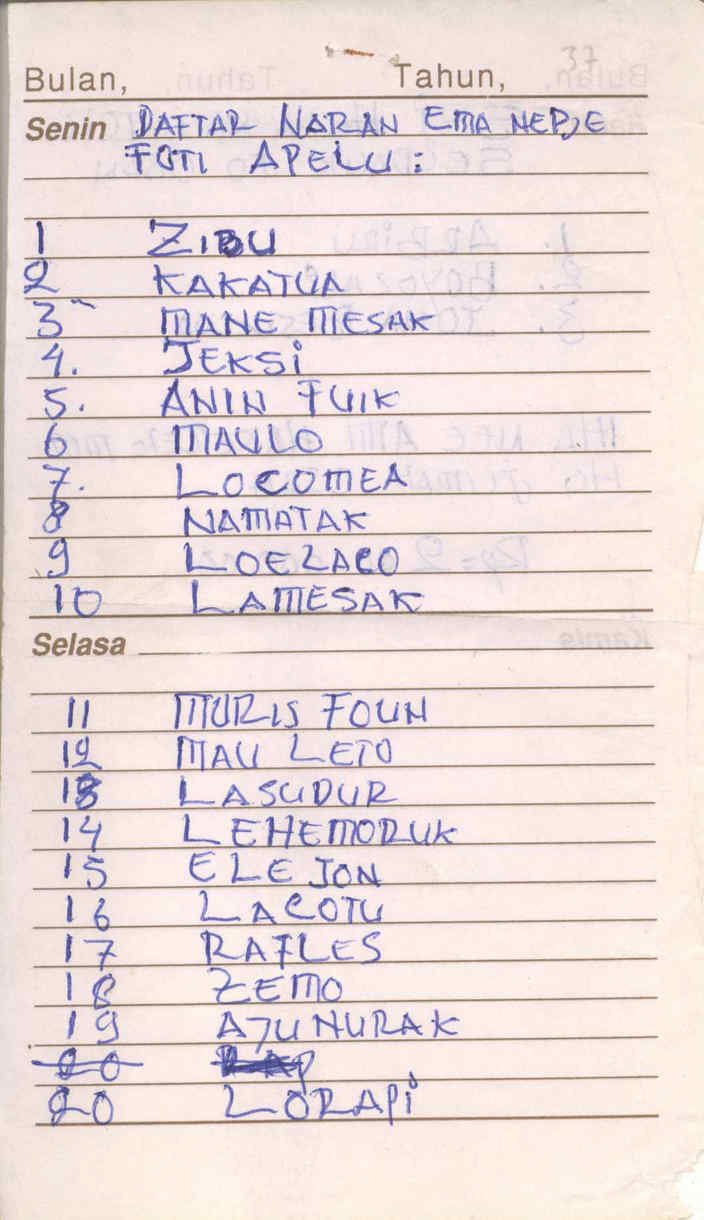 37
Bulan, Tahun,
Senin DAFTAR NARAN EMA NEPJE
FOTI APELU:
1 ZIBU
2 KAKATUA
3 MANE MESAK
4. JEKSi
5. ANIN FUIK
6 MAULO
7. LOCOMEA
8 NAMATAK
9 LOELACO
10 LAMESAK
Selasa
11 MURIS FOUN
12 MAU LETO
13 LASUDUR
14 LEHEMORUK
15 ELE JON
16 LACOTU
17 RAFLES
18 ZEMO
19 AJUNURAK
20
20 LORAPi